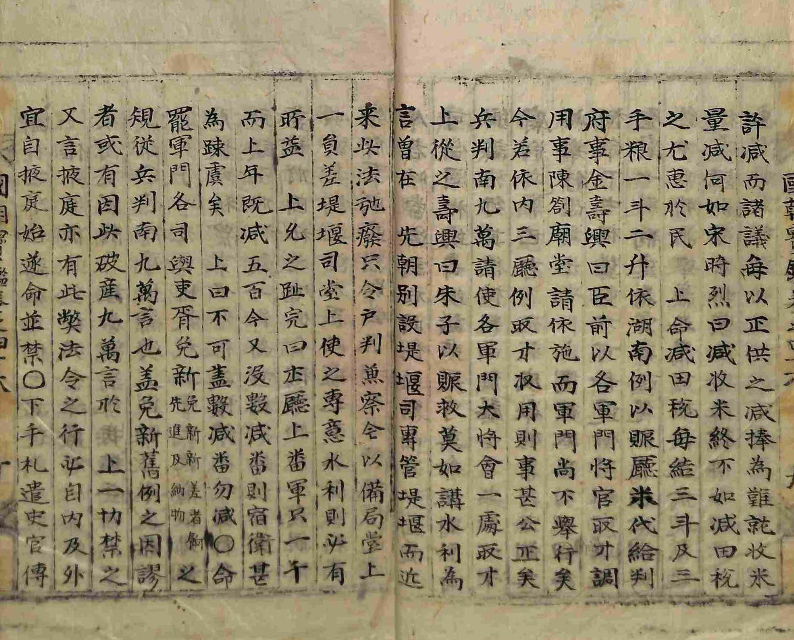 許减而諸議每以正供之减捧為難就收米
量减何如宋時烈曰减收米終不如减田稅
之尤惠於民　上命减田稅每結三斗及三
手粮一斗二升依湖南例以賑廳米代給判
府事金壽興曰臣前以各軍門將官取才調
用事陳劄廟堂請依施而軍門尚不舉行矣
今若依內三廳例取才收用則事甚公正矣
兵判南九萬請使各軍門大將會一處取才
上從之壽興曰朱子以賑救莫如講水利為
言曽在　先朝别設堤堰司專管堤堰而近
来此法弛癈只令戶判兼察令以備局堂上
一員差堤堰司堂上使之專意水利則必有
所益　上允之趾完曰本廳上番軍只一千
而上年既减五百今又没數减番則宿衛甚
為踈虞矣　上曰不可盡數减番勿减〇命
罷軍門各司與吏胥免新免新新差者徵先進及納物之
規從兵判南九萬言也盖免新舊例之因謬
者或有因此破產九萬言於　上一切禁之
又言掖庭亦有此弊法令之行必自內及外
宜自掖庭始遂命並禁〇下手札遣史官傳